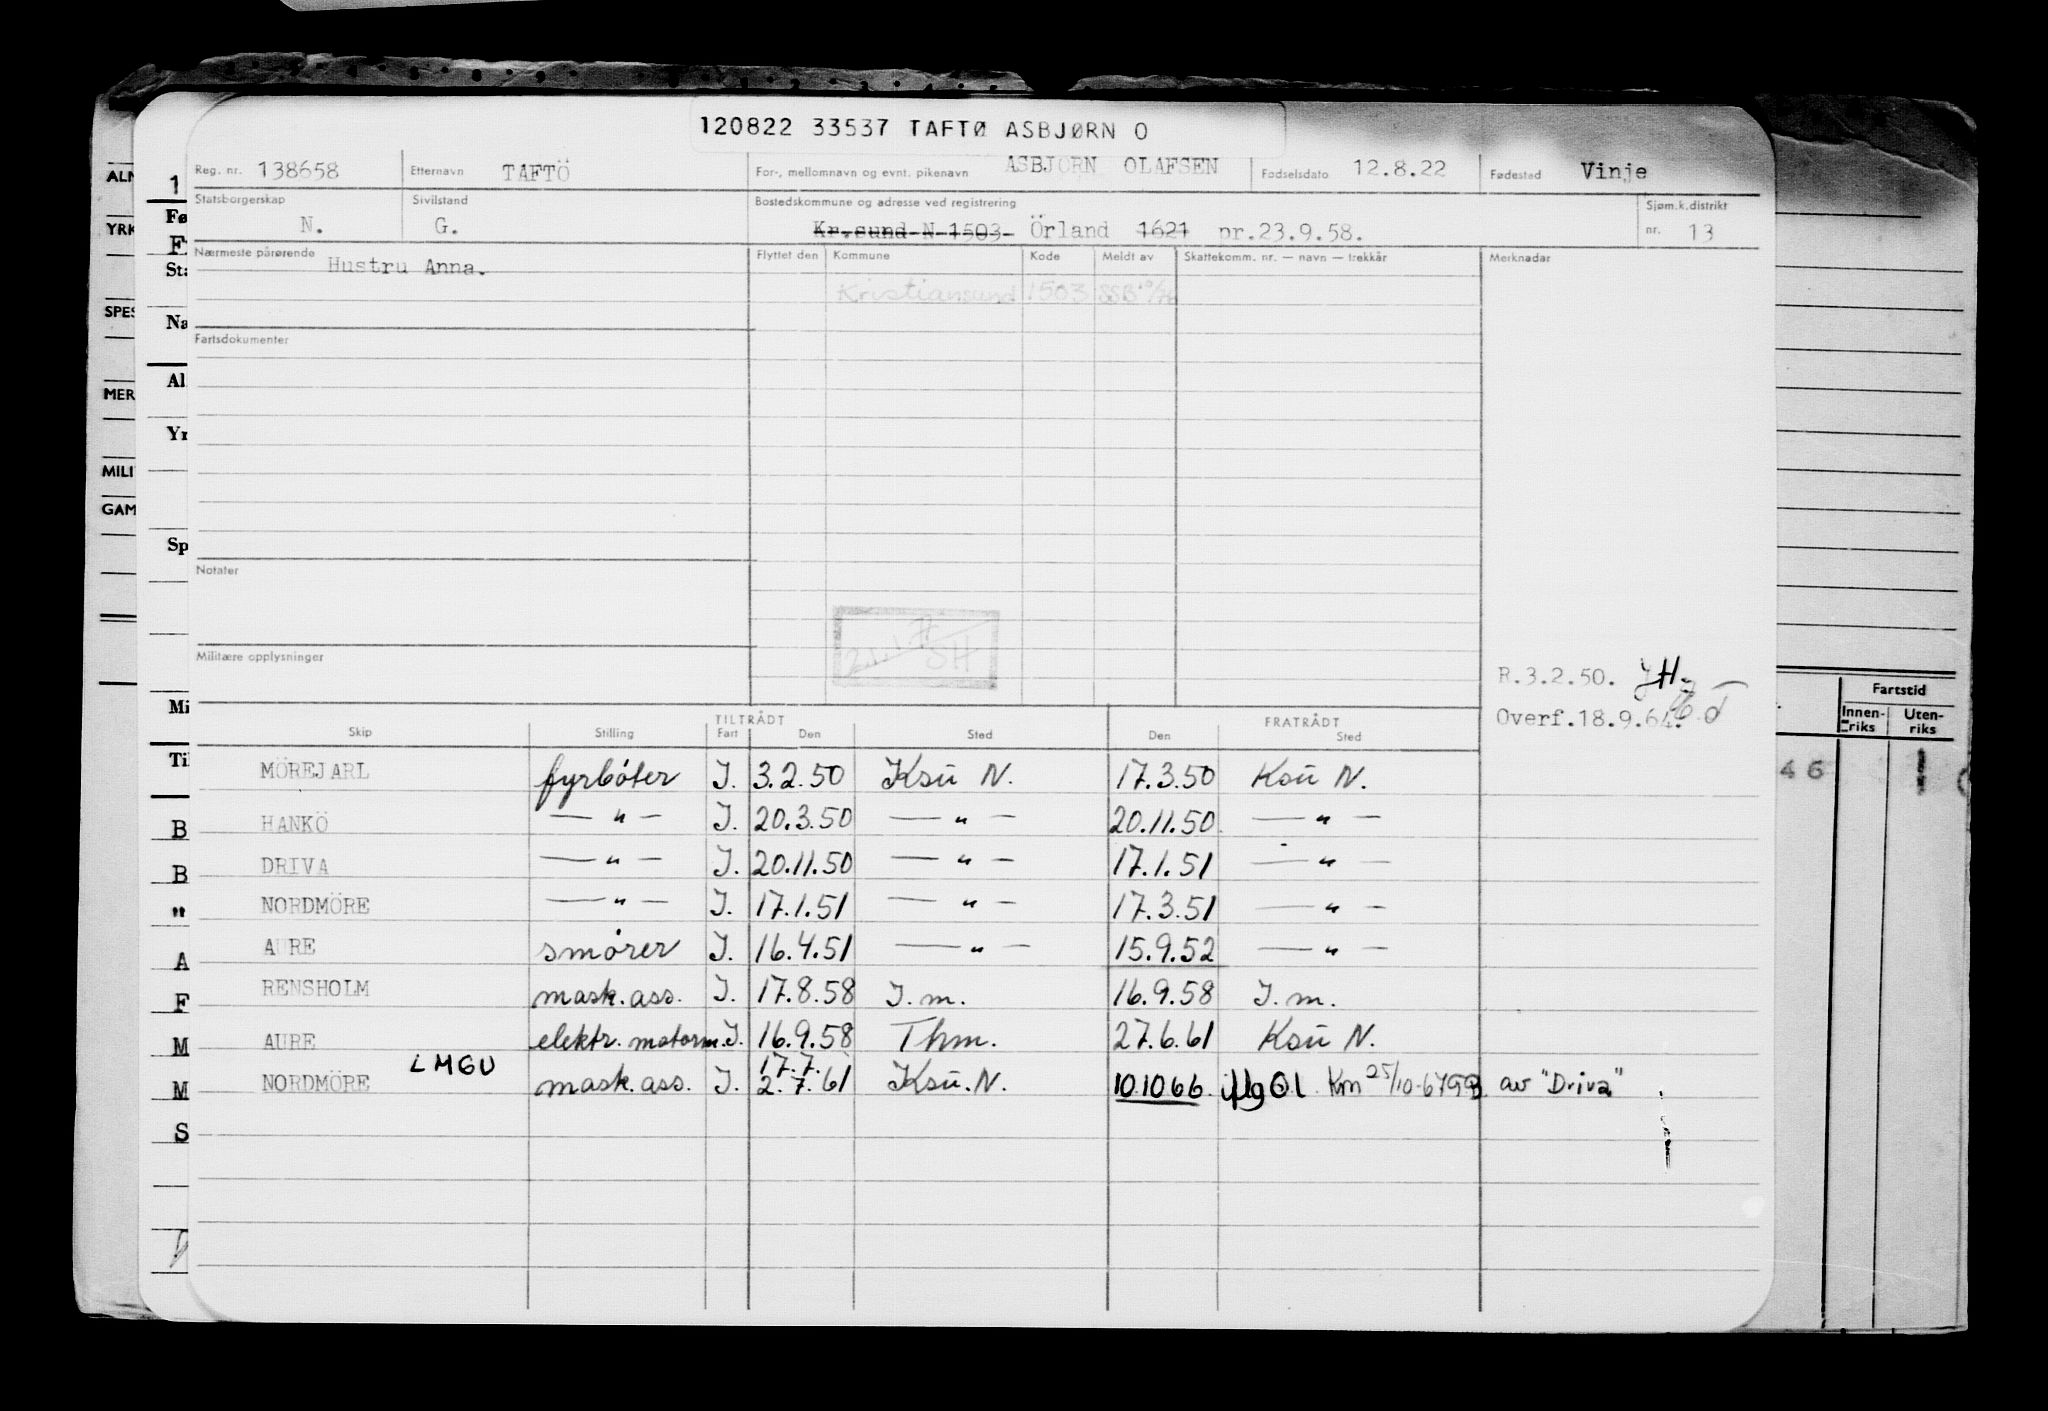 120822 33537 TAFTØ ASBJØRN O
Reg. nr. 138658 Etternavn TAFTÖ For-, mellomnavn og evnt. pikenavn ASBJÖRN OLAFSEN Fødselsdato 12.8.22 Fødested Vinje
Statsborgerskap N. Sivilstand G. Bostedskommune og adresse ved registrering Kr.sund N 1503 Örland 1621 pr.23.9.58. Sjøm.k.distrikt nr. 13
Nærmeste pårørende Hustru Anna. Flyttet den Kommune Kode Meldt av Skattekomm. nr. — navn — trekkår Merknader
Kristiansund 1503 SSB
Fartsdokumenter
Notater
Militære opplysninger
SH
R.3.2.50. JH.
Overf.18.9.64.
TILTRÅDT FRATRÅDT
Skip Stilling Fart Den Sted Den Sted
MÖREJARL fyrbøter I. 3.2.50 Ksu N. 17.3.50 Ksu N.
HANKÖ — " — I. 20.3.50 — " — 20.11.50 — " —
DRIVA — " — I. 20.11.50 — " — 17.1.51 — " —
NORDMÖRE — " — I. 17.1.51 — " — 17.3.51 — " —
AURE smører I. 16.4.51 — " — 15.9.52 — " —
RENSHOLM mask. ass. I. 17.8.58 I. m. 16.9.58 I. m.
AURE elektr. motorm. I. 16.9.58 Thm. 27.6.61 Ksu N.
LMGU 17.7.
NORDMÖRE mask. ass. I. 2.7.61 Ksu. N. 10.10 66. Km 25/10-67 av "Driva"
ALM
YRK
SPES
MER
MILI
GAM
1
Fø
F
Sta
Na
Al
Yr
Sp
Mi
Til
B
B
"
A
F
M
M
S
Fartstid
Innen-riks Uten-riks
46